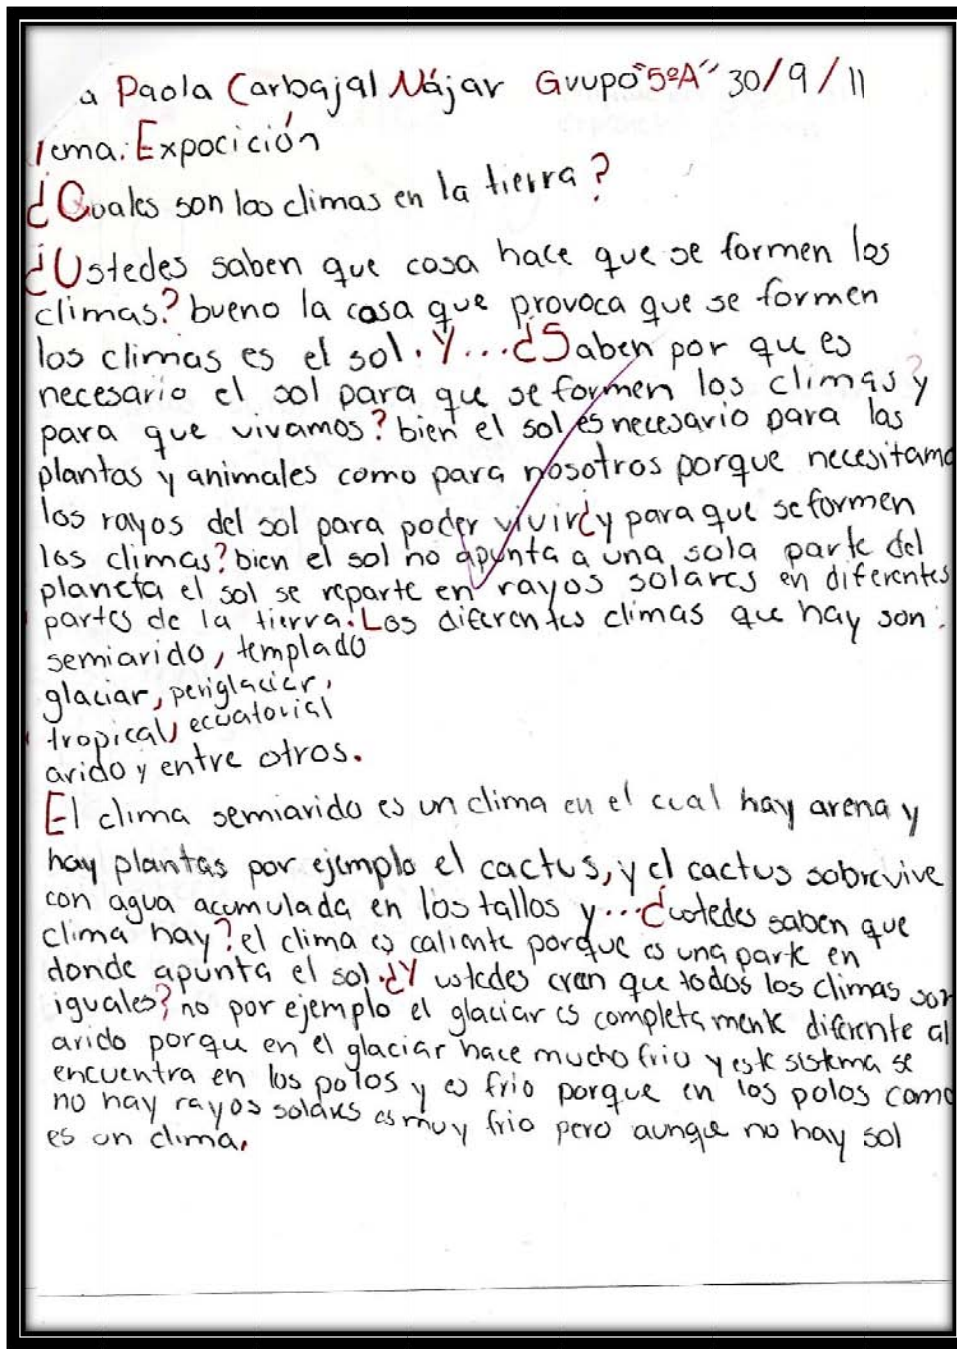 a Paola Carbajal Nájar Grupo "5ºA" 30/9/11
Tema: Expocición
¿Quales son los climas en la tierra?
¿Ustedes saben que cosa hace que se formen los
climas? bueno la cosa que provoca que se formen
los climas es el sol. Y...¿Saben por que es
necesario el sol para que se formen los climas? y
para que vivamos? bien el sol es necesario para las
plantas y animales como para nosotros porque necesitamo
los rayos del sol para poder vivir¿y para que se formen
los climas? bien el sol no apunta a una sola parte del
planeta el sol se reparte en rayos solares en diferentes
partes de la tierra. Los diferentes climas que hay son:
semiarido, templado
glaciar, periglaciar,
tropical, ecuatorial
arido y entre otros.
El clima semiarido es un clima en el cual hay arena y
hay plantas por ejemplo el cactus, y el cactus sobrevive
con agua acumulada en los tallos y...¿ustedes saben que
clima hay? el clima es caliente porque es una parte en
donde apunta el sol.¿Y ustedes cren que todos los climas son
iguales? no por ejemplo el glaciar es completamente diferente al
arido porqu en el glaciar hace mucho frio y este sistema se
encuentra en los polos y es frio porque en los polos como
no hay rayos solares es muy frio pero aunque no hay sol
es un clima.